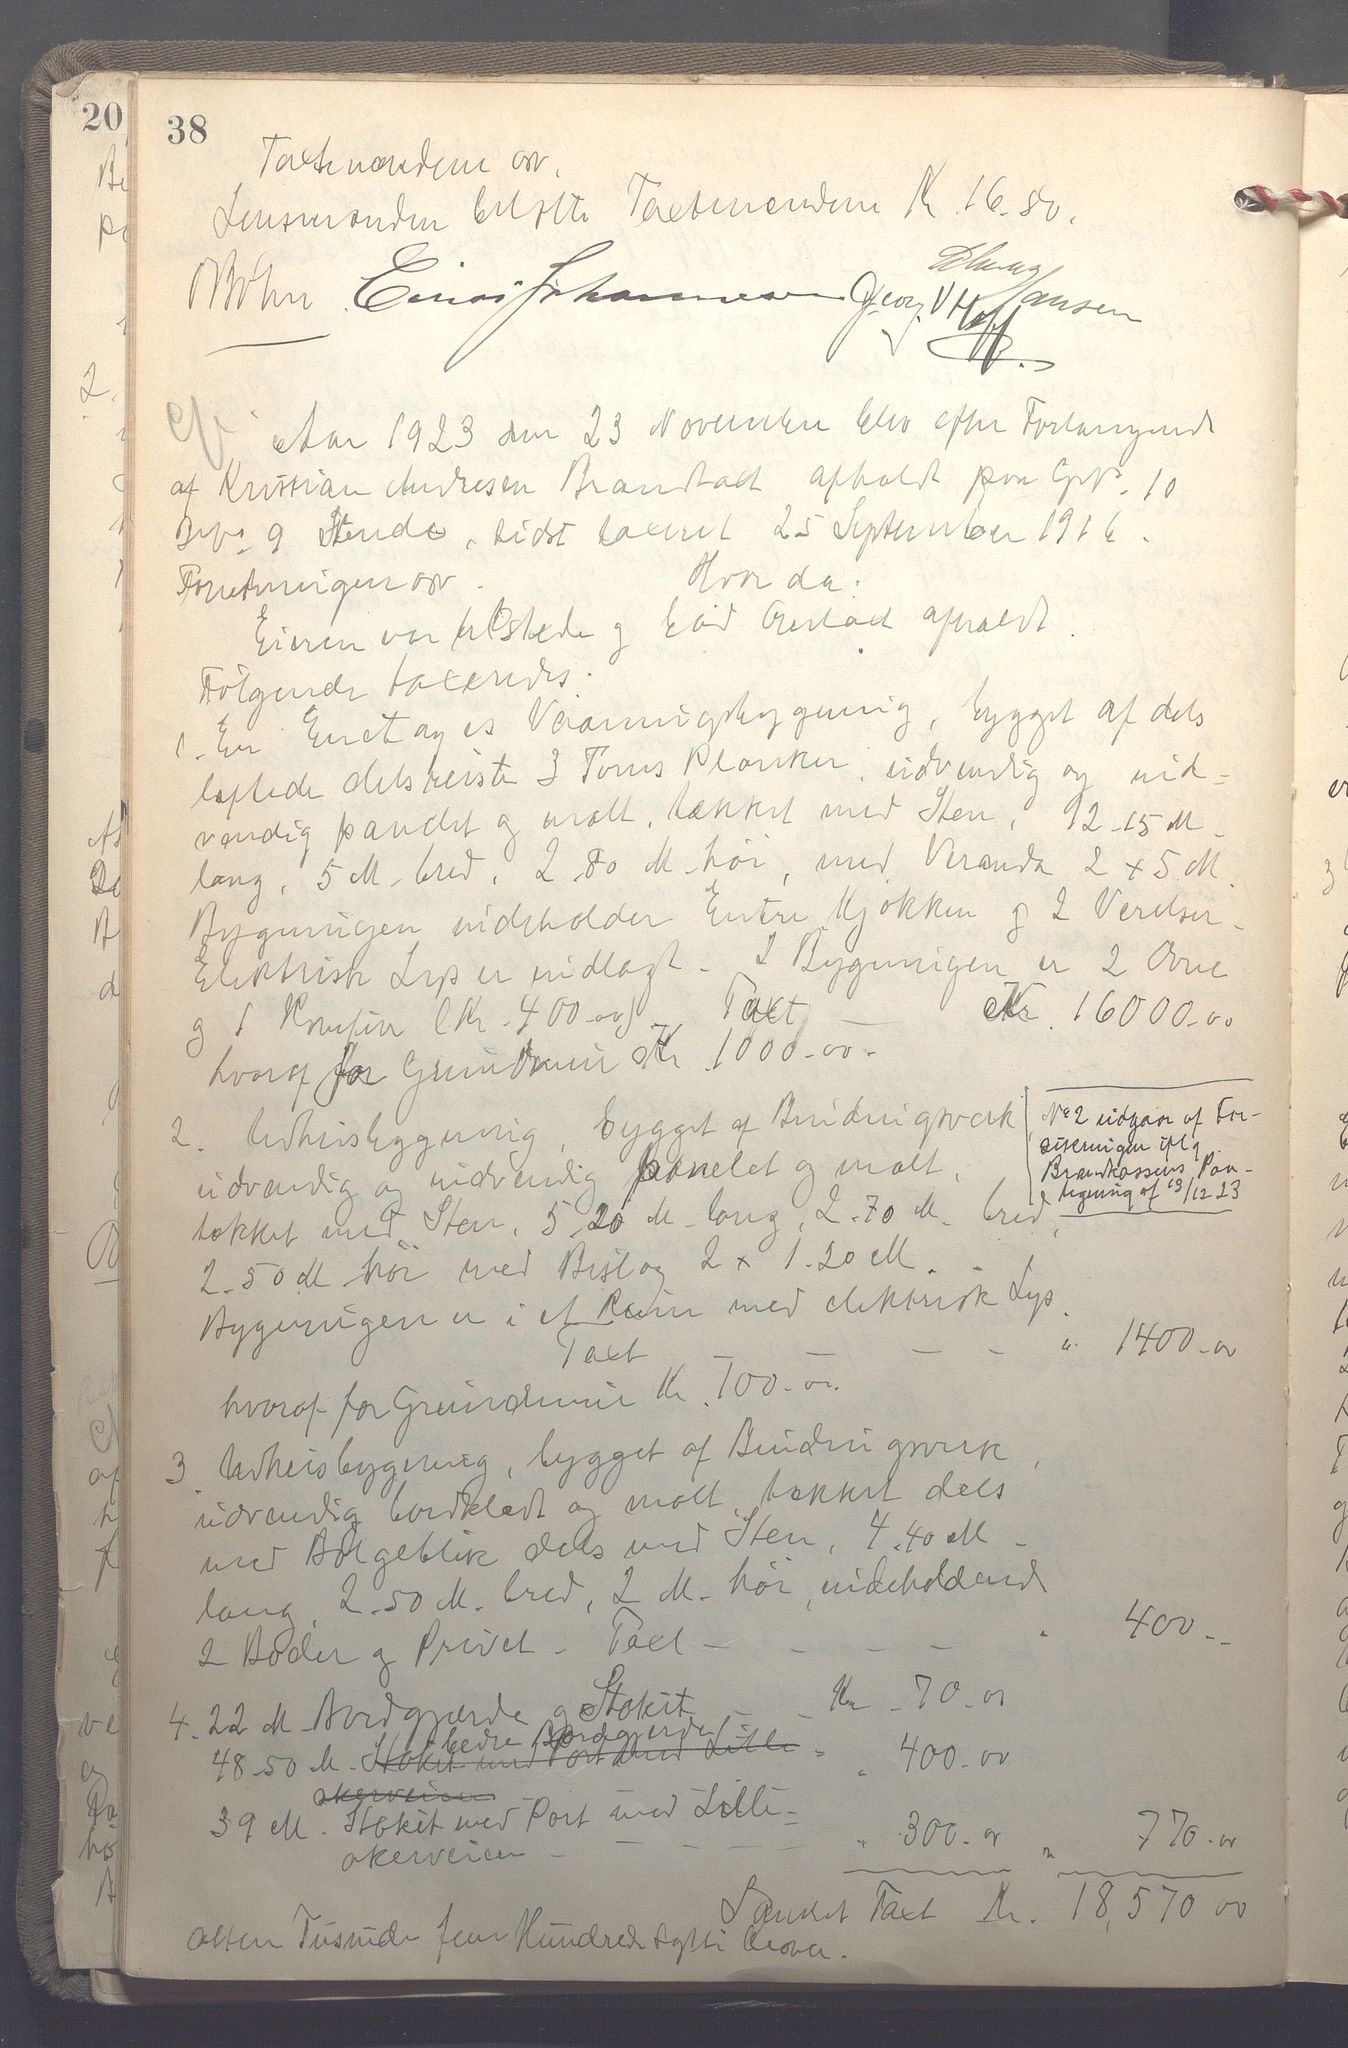 20
38
Taxtmændene osv.
Lensmanden bilagte Taxtmændene Kr. 16.80.
O Bøhn Einar Johannessen Georg V Hoff
Hansen
Aar 1923 den 23 November blev efter Forlangende
af Kristian Andresen Brandtaxt afholdt paa Gr№. 10
Br№. 9 Stende, sidst taxeret 25 September 1916.
Forretningen osv. Hvor da:
Eieren var tilstede og blev afholdt.
Følgende taxeredes:
1. En Enetages Vaaningsbygning, bygget af dels
laftede dels reiste 3 Toms Planker, udvendig og ind-
vendig panelet og malt, tækket med Sten, 12.15 M.
lang, 5 M. bred, 2.80 M. høi, med Veranda 2 x 5 M.
Bygningen indeholder Entre, Kjøkken og 2 Værelser.
Elektrisk Lys er indlagt. I Bygningen er 2 Ovne
og 1 Komfur (Kr. 400.00) Taxt — Kr. 16000.00
hvoraf for Grundmur Kr. 1000.00.
2. Udhusbygning, bygget af Bindingsværk,
udvendig og indvendig panelet og malt,
tækket med Sten, 5.20 M. lang, 2.70 M. bred,
2.50 M. høi med Bislag 2 x 1.20 M.
Bygningen er i et Rum med elektrisk Lys.
Taxt — — — — " 1400.00
hvoraf for Grundmur Kr. 100.00.
№ 2 udgaar af For-
sikringen ifl.
Brandkassens Paa-
tegning af 13/12 23
3 Udhusbygning, bygget af Bindingsverk,
udvendig bordklædt og malt, tækket dels
med Bølgeblik dels med Sten, 4.40 M.
lang, 2.50 M. bred, 2 M. høi, indeholdende
2 Boder og Privet. Taxt — — — — " 400.—
4. 22 M. Bordgjærde og Stakit — — Kr. 70.00
48.50 M. bedre Bordgjerde " 400.00
Stakit med Port mod Lille
akerveien
39 M. Stakit med Port mod Lille=
akerveien — — — — " 300.00 " 770.00
Samlet Taxt Kr. 18,570 00
atten Tusinde fem Hundrede sytti Kroner.